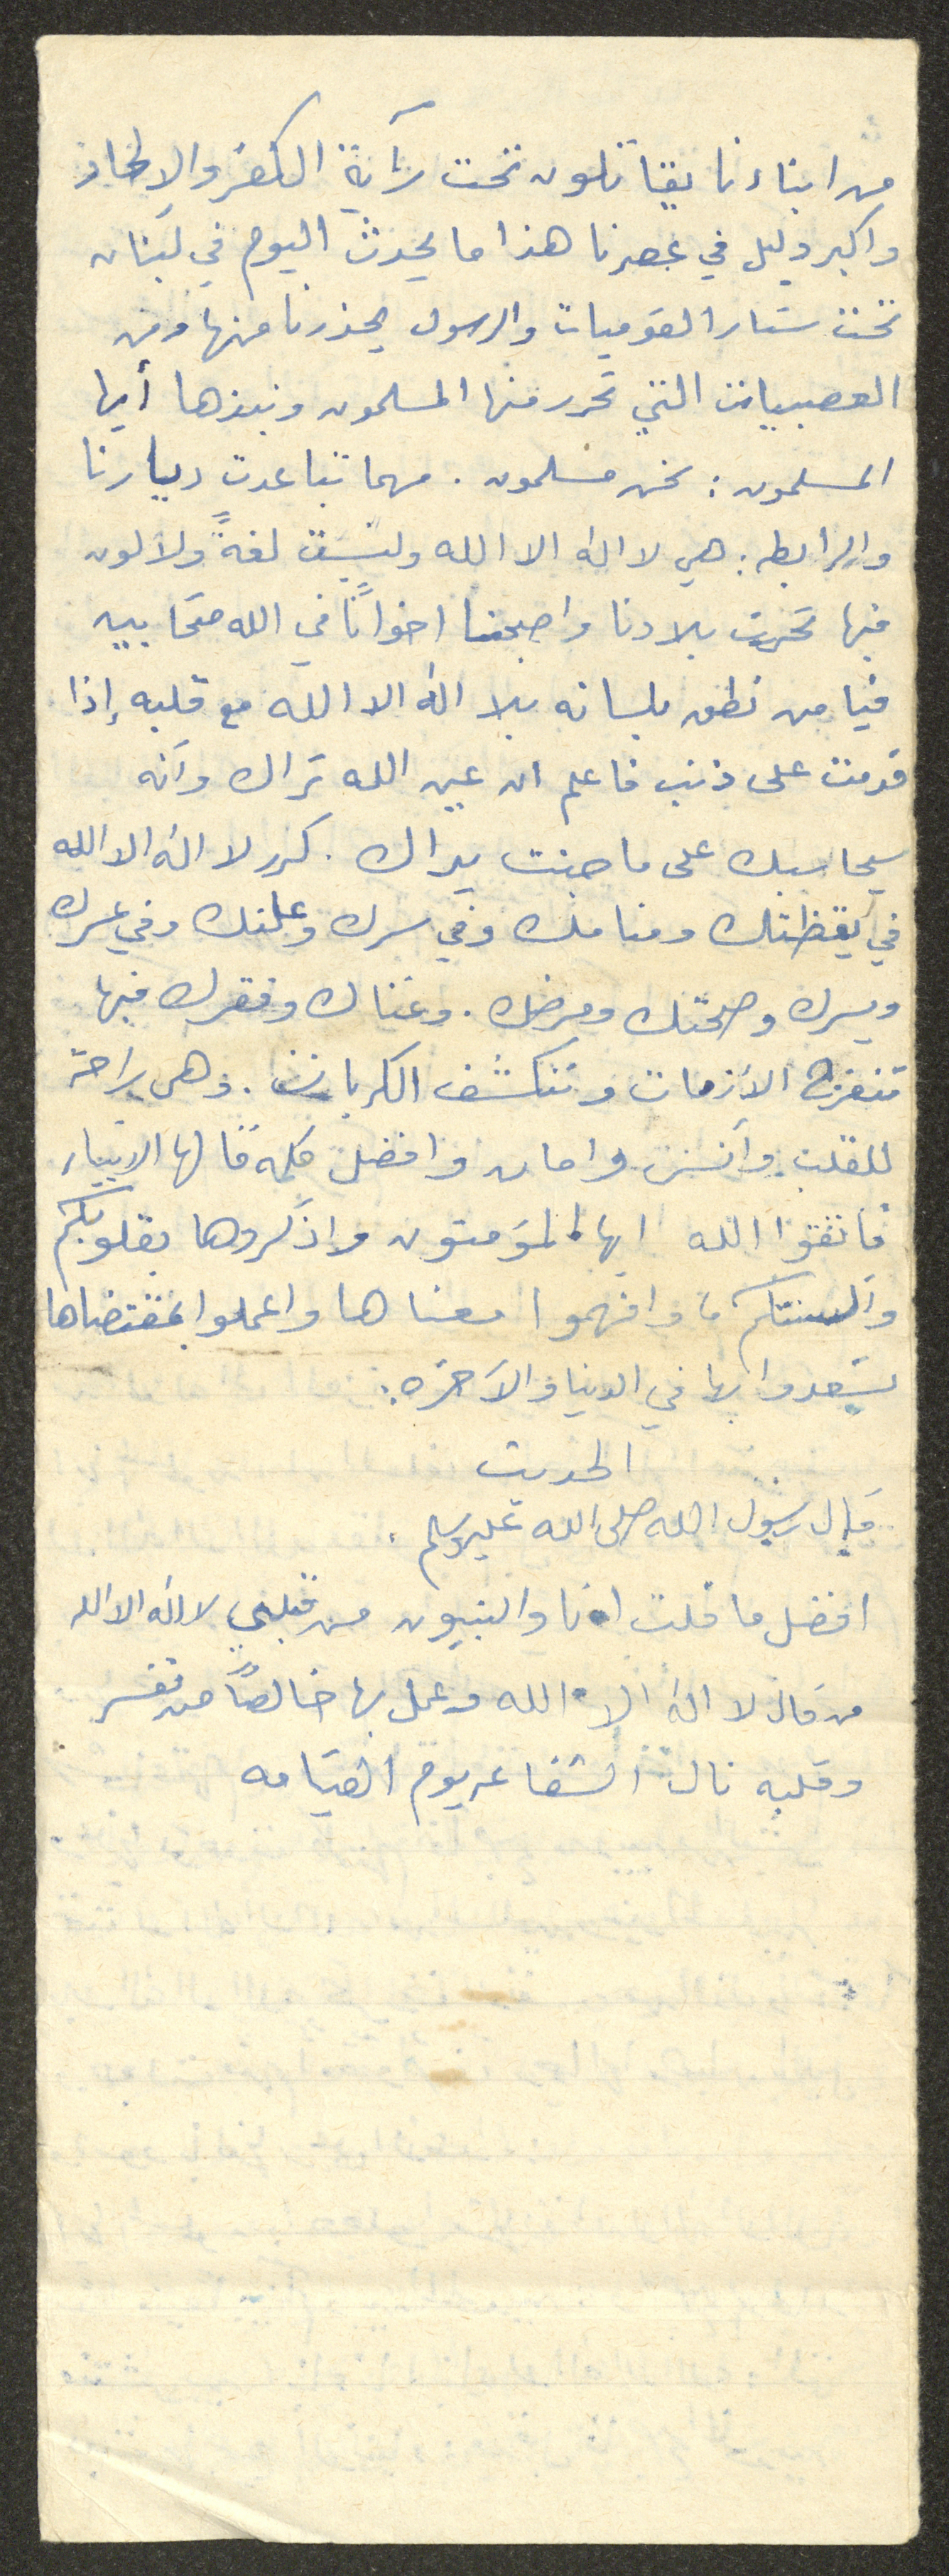 من ابناءنا يقاتلون تحت رآية الكفر والإلحاد
واكبر دليل في عصرنا هذا ما يحدث اليوم في لبنان
تحت ستار القوميات والرسول يحذرنا منها ومن
العصبيات التي تحرر منها المسلمون ونبذها أيها
المسلمون : نحن مسلمون . مهما تباعدت ديارنا
والرابطه : هي لا اله الا الله وليست لغةً ولا لون
فبها تحررت بلادنا واصبحنا اخوانًا في الله متحابيين
فيا من نطق بلسانه بلا اله الا الله مع قلبه إذا
قدمت على ذنب فاعلم ان عين الله تراك وآنه
سيحاسبك على ما جنت يداك . كرر لا اله الا الله
في يقظتك ومنامك وفي سرك وعلنك وفي عسرك
ويسرك وصحتك ومرضك . وغناك وفقرك فبها
تنفرج الأزمات وتنكشف الكربات . وهي راحة
للقلب وآنس وامان وافضل كلمه قالها الانبياء
فاتقوا الله ايها المؤمنون واذكروها بقلوبكم
وآلسنتكم وافهموا معناها واعملوا بمقتضاها
تسعدوا بها في الدنيا والآخره :
الحديث
قال رسول الله صلى الله عليه وسلم .
افضل ما قلت انا والنبيون من قبلي لا اله الا الله
من قال لا اله الا الله وعمل بها خالصًا من نفسه
وقلبه نال الشفاعه يوم القيامه